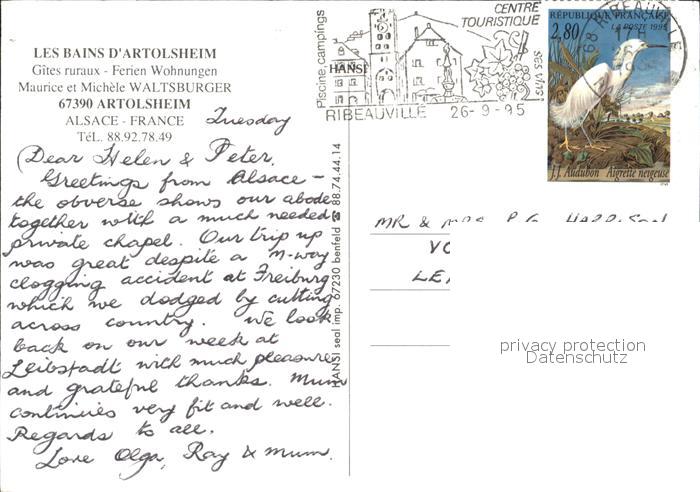 LES BAINS D'ARTOLSHEIM
Gîtes ruraux - Ferien Wohnungen
Maurice et Michèle WALTSBURGER
67390 ARTOLSHEIM
ALSACE - FRANCE
TéL. 88.92.78.49
Tuesday
Dear Helen & Peter,
Greetings from Alsace -
the obverse shows our abode
together with a much needed
private chapel. Our trip up
was great despite a M-way
clogging accident at Freiburg
which we dodged by cutting
across country. We look
back on our week at
Leibstadt with much pleasure
and grateful thanks. Mum
continues very fit and well.
Regards to all.
Love Olga, Ray & Mum.
HANSI sedi imp. 67230 benfeld ☎ 88.74.44.14
Piscine, campings
HANSI
CENTRE
TOURISTIQUE
SES VINS
RIBEAUVILLE 26-9-95
68 RIBEAUVILLE
17H
RÉPUBLIQUE FRANÇAISE
2,80
LA POSTE 1995
J.J. Audubon Aigrette neigeuse
MR & MRS P.G. HARRISON
privacy protection
Datenschutz